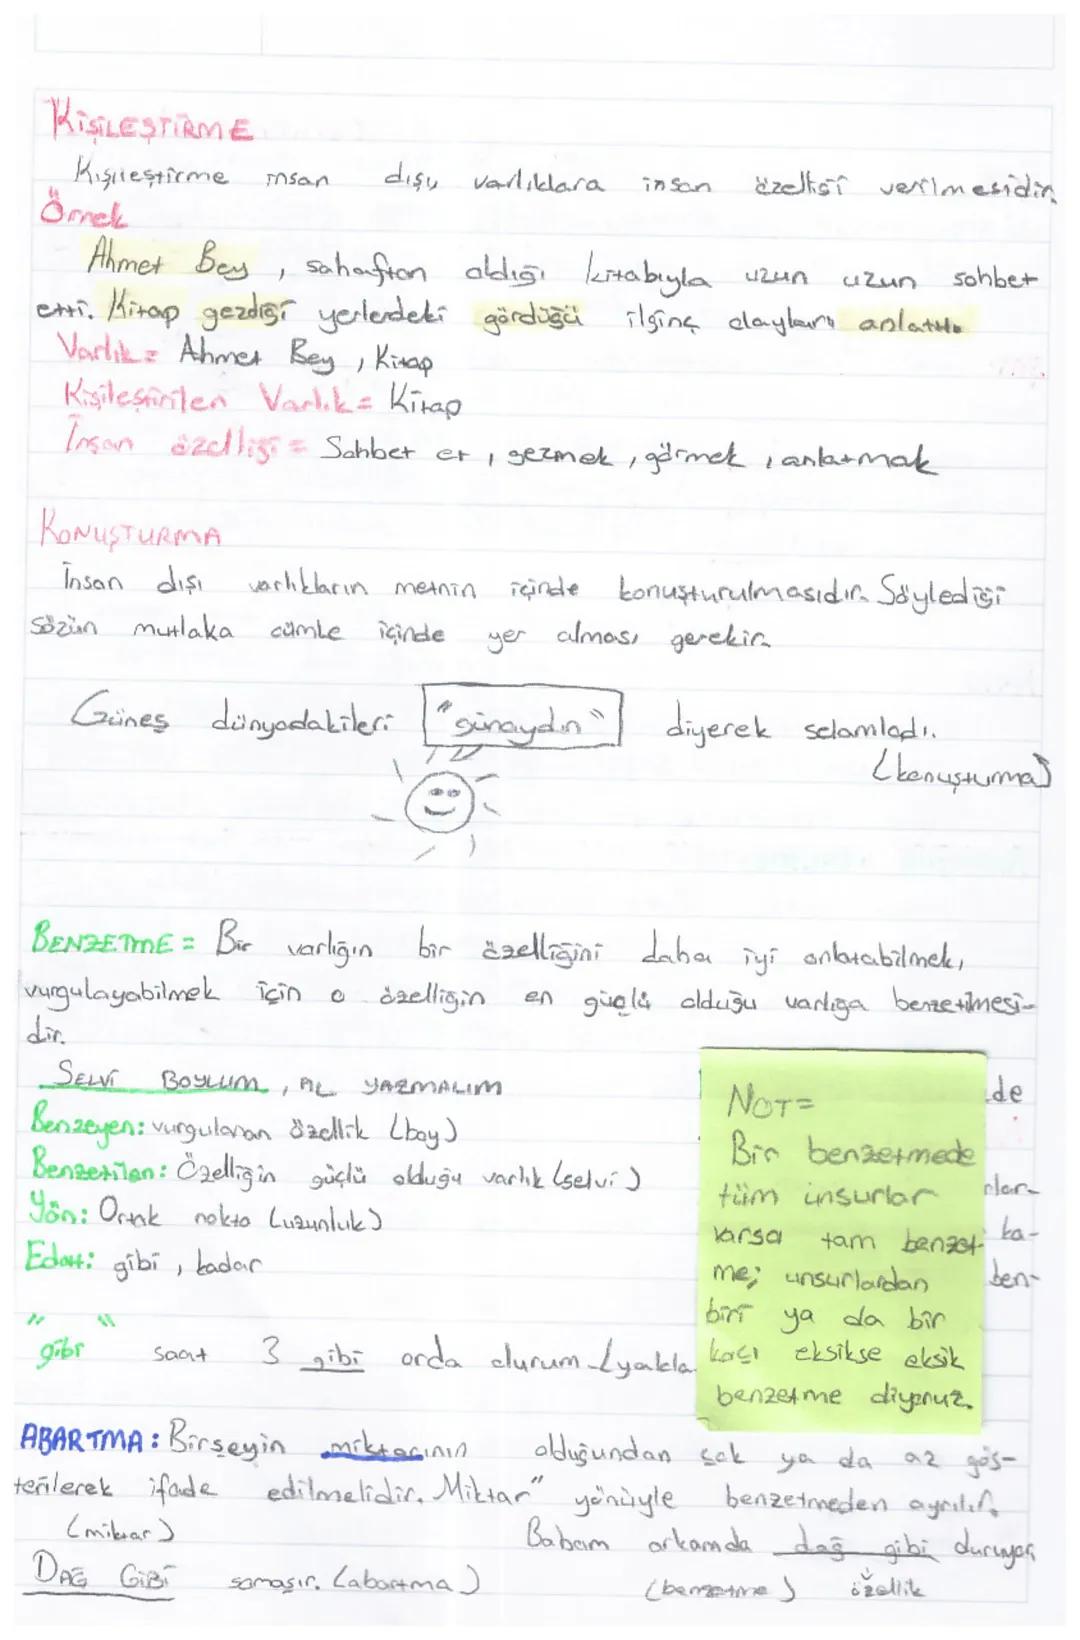 KİŞİLEŞTİRME
Kişileştirme insan dışı varlıklara insan özelliği verilmesidir.
Örnek
Ahmet Bey, sahaftan aldığı kitabıyla uzun uzun sohbet
etti. Kitap gezdiği yerlerdeki gördüğü ilginç olayları anlattı.
Varlık = Ahmet Bey, Kitap
Kişileştirilen Varlık = Kitap
İnsan özelliği = Sohbet et, gezmek, görmek, anlatmak
KONUŞTURMA
İnsan dışı varlıkların metnin içinde konuşturulmasıdır. Söylediği
sözün mutlaka cümle içinde yer alması gerekir.
Güneş dünyadakileri "günaydın" diyerek selamladı.
(konuşturma)
BENZETME = Bir varlığın bir özelliğini daha iyi anlatabilmek,
vurgulayabilmek için o özelliğin en güçlü olduğu varlığa benzetilmesi-
dir.
SELVİ BOYLUM, AL YAZMALIM
Benzeyen: vurgulanan özellik (boy)
Benzetilen: Özelliğin güçlü olduğu varlık (selvi)
Yön: Ortak nokta (uzunluk)
Edat: gibi, kadar
"gibi" saat 3 gibi orda olurum (yakla
NOT=
Bir benzetmede
tüm unsurlar
varsa tam benzet
me; unsurlardan
biri ya da bir
kaçı eksikse eksik
benzetme diyoruz.
de
lar-
ka-
ben-
ABARTMA: Birşeyin miktarının olduğundan çok ya da az gös-
terilerek ifade edilmelidir. Miktar" yönüyle benzetmeden ayrılır.
(miktar) Babam arkamda dağ gibi duruyor
DAĞ GİBİ çamaşır. (abartma) (benzetme) özellik